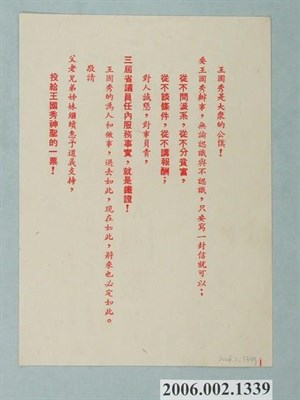 王國秀是大衆的公僕！
委王國秀辦事，無論認識與不認識，只要寫一封信就可以；
從不問派系，從不分貧富，
從不談條件，從不講報酬；
對人誠懇，對事負責，
三屆省議員任內服務事實，就是鐵證！
王國秀的爲人和做事，過去如此，現在如此，將來也必定如此。
敬請
父老兄弟姊妹繼續惠予道義支持，
投給王國秀神聖的一票！
2006.002.1339